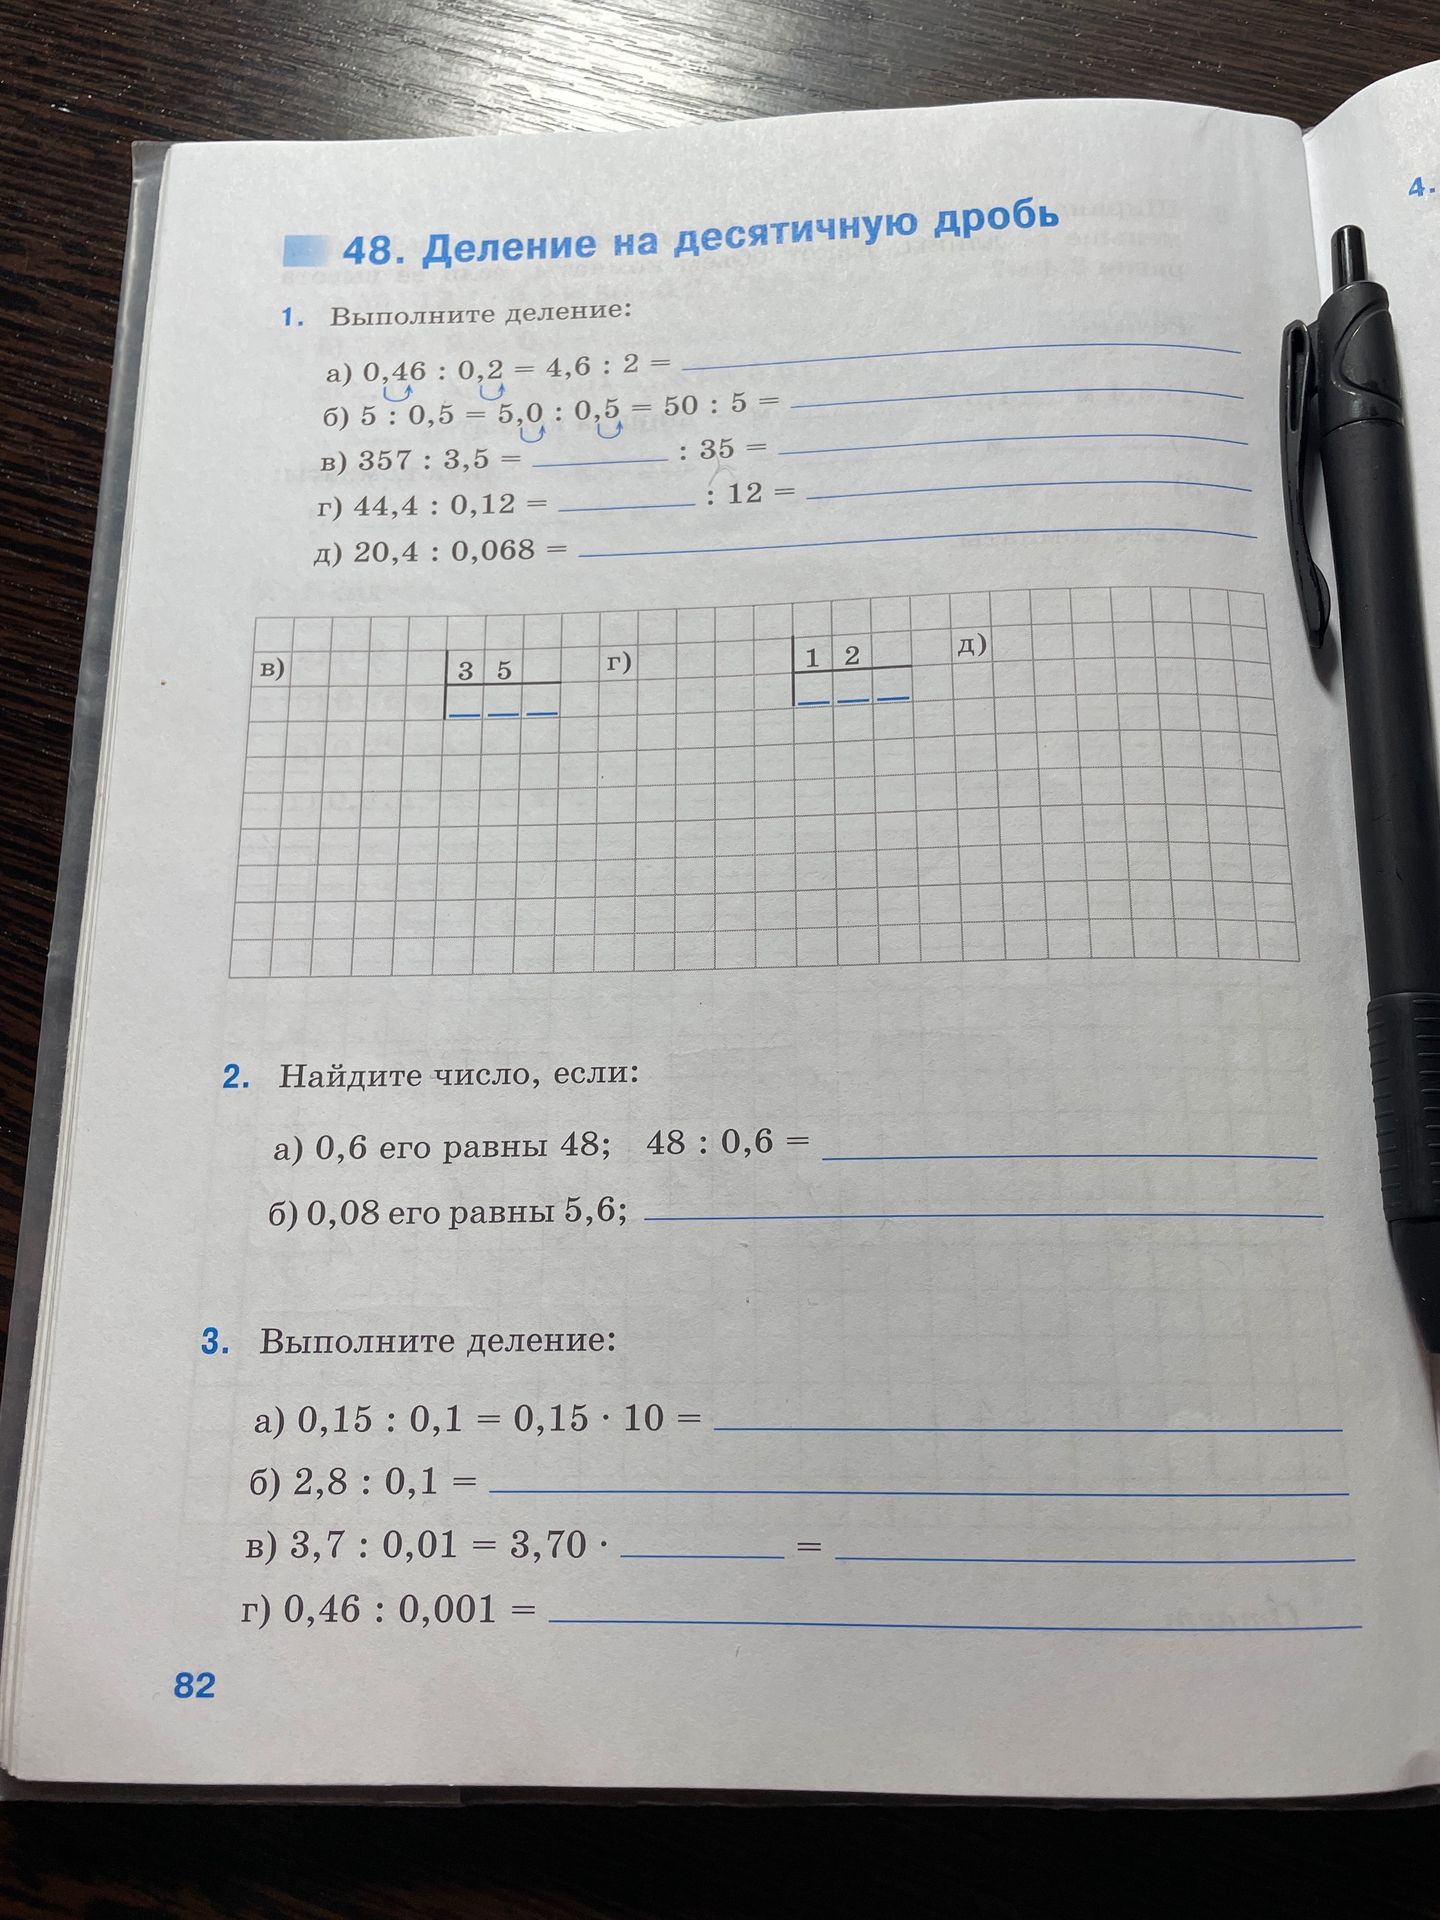 48. Деление на десятичную дробь
4.
1. Выполните деление:
а) 0,46 : 0,2 = 4,6 : 2 =
б) 5 : 0,5 = 5,0 : 0,5 = 50 : 5 =
в) 357 : 3,5 = : 35 =
г) 44,4 : 0,12 = : 12 =
д) 20,4 : 0,068 =
в) 3 5 г) 1 2 д)
2. Найдите число, если:
а) 0,6 его равны 48; 48 : 0,6 =
б) 0,08 его равны 5,6;
3. Выполните деление:
а) 0,15 : 0,1 = 0,15 · 10 =
б) 2,8 : 0,1 =
в) 3,7 : 0,01 = 3,70 · =
г) 0,46 : 0,001 =
82